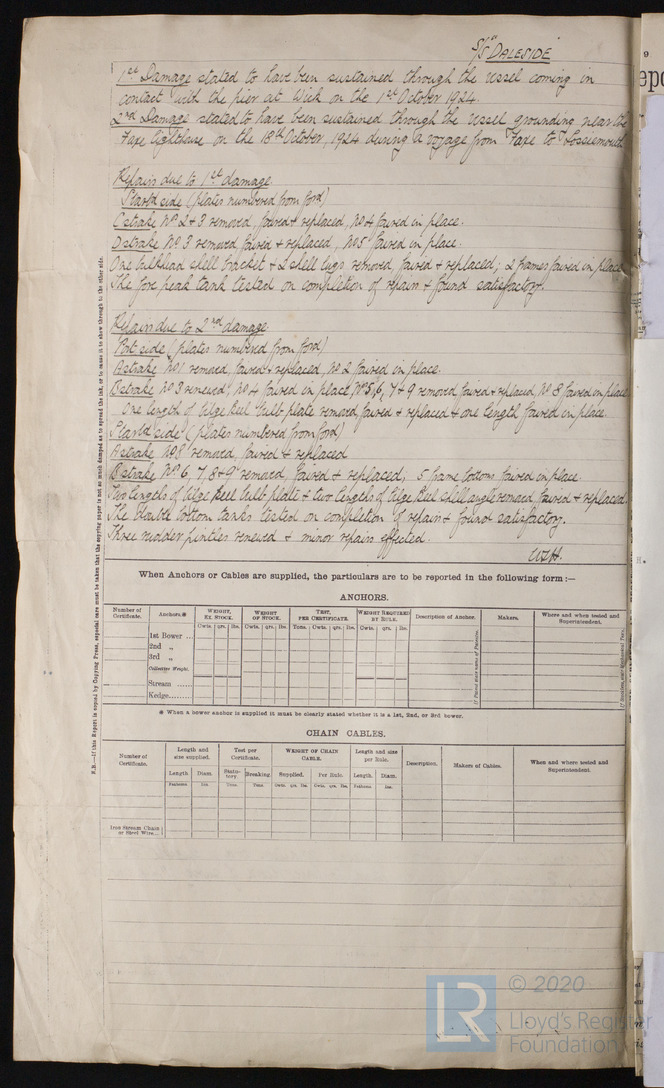 S/S "DALESIDE"
1st Damage stated to have been sustained through the vessel coming in
contact with the pier at Wick on the 1st October 1924.
2nd Damage stated to have been sustained through the vessel grounding near the
Faxe lighthouse on the 18th October, 1924 during a voyage from Faxe to Lossiemouth
Repairs due to 1st damage.
Starbd side (plates numbered from ford)
C strake Nos 2 & 3 removed, faired & replaced, No 4 faired in place.
D strake No 3 removed faired & replaced, No 5 faired in place.
One bulkhead shell bracket & 2 shell lugs removed, faired & replaced; 2 frames faired in place
The fore peak tank tested on completion of repairs & found satisfactory.
Repairs due to 2nd damage
Port side (plates numbered from ford)
A strake No 1 removed, faired & replaced, No 2 faired in place.
B strake No 3 renewed, No 4 faired in place, Nos 5, 6, 7 & 9 removed faired & replaced, No 8 faired in place
One length of bilge keel bulb plate removed, faired & replaced & one length faired in place.
Starbd side (plates numbered from ford)
A strake No 8 removed, faired & replaced
B strake Nos 6, 7, 8 & 9 removed, faired & replaced; 5 frame bottoms faired in place.
Two lengths of bilge keel bulb plate & two lengths of bilge keel shell angle removed faired & replaced
The double bottom tanks tested on completion of repairs & found satisfactory.
Three rudder pintles renewed & minor repairs effected.
N.B.—If this Report is copied by Copying Press, especial care must be taken that the copying paper is not so much damped as to spread the ink, or to cause it to show through to the other side.
When Anchors or Cables are supplied, the particulars are to be reported in the following form:—
ANCHORS.
Number of Certificate.
Anchors.*
WEIGHT, EX. STOCK.
WEIGHT OF STOCK.
TEST, PER CERTIFICATE.
WEIGHT REQUIRED BY RULE.
Description of Anchor.
Makers.
Where and when tested and Superintendent.
Cwts. qrs. lbs. Cwts. qrs. lbs. Tons. Cwts. qrs. lbs. Cwts. qrs. lbs.
1st Bower ...
2nd „
3rd „
Collective Weight.
Stream ......
Kedge......
* When a bower anchor is supplied it must be clearly stated whether it is a 1st, 2nd, or 3rd bower.
CHAIN CABLES.
Number of Certificate.
Length and size supplied.
Test per Certificate.
WEIGHT OF CHAIN CABLE.
Length and size per Rule.
Description.
Makers of Cables.
When and where tested and Superintendent.
Length Diam. Statutory. Breaking Supplied. Per Rule. Length. Diam.
Fathoms Ins Tons. Tons. Cwts. qrs. lbs. Cwts. qrs. lbs. Fathoms Ins.
Iron Stream Chain or Steel Wire...
LR
© 2020
Lloyd's Register
Foundation